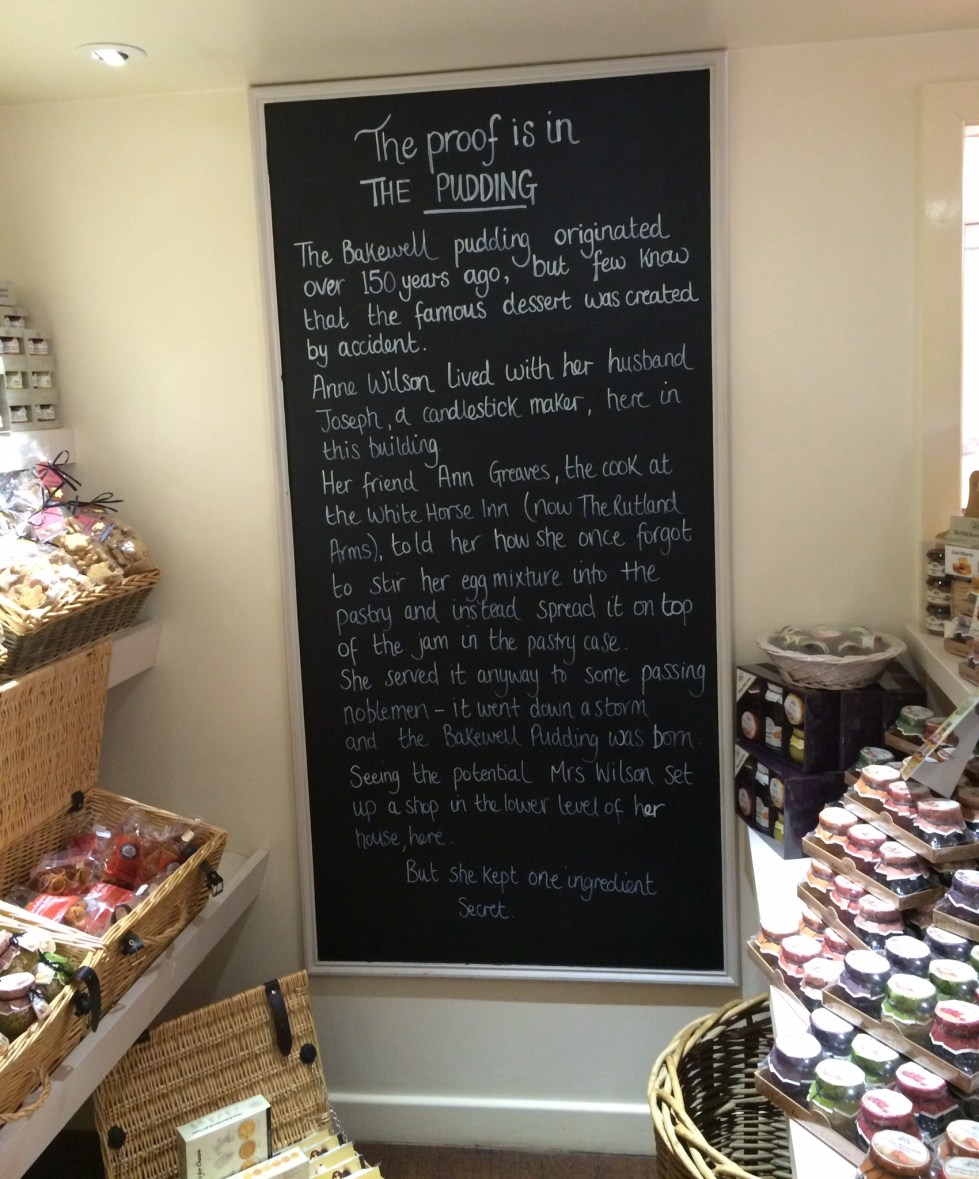 The proof is in
THE PUDDING
The Bakewell pudding originated
over 150 years ago, but few know
that the famous dessert was created
by accident.
Anne Wilson lived with her husband
Joseph, a candlestick maker, here in
this building.
Her friend Ann Greaves, the cook at
the White Horse Inn (now The Rutland
Arms), told her how she once forgot
to stir her egg mixture into the
pastry and instead spread it on top
of the jam in the pastry case.
She served it anyway to some passing
noblemen – it went down a storm
and the Bakewell Pudding was born.
Seeing the potential Mrs Wilson set
up a shop in the lower level of her
house, here.
But she kept one ingredient
Secret.